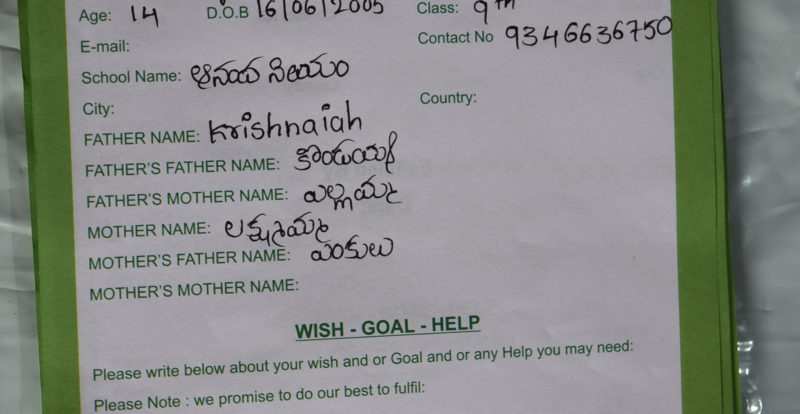 Age: 14 D.O.B 16/06/2005 Class: 9th
E-mail: Contact No 9346636750
School Name: ఆనంద నిలయం
City: Country:
FATHER NAME: Krishnaiah
FATHER'S FATHER NAME: కొండయ్య
FATHER'S MOTHER NAME: ఎల్లమ్మ
MOTHER NAME: లక్ష్మమ్మ
MOTHER'S FATHER NAME: వెంకులు
MOTHER'S MOTHER NAME:
WISH - GOAL - HELP
Please write below about your wish and or Goal and or any Help you may need:
Please Note : we promise to do our best to fulfil: